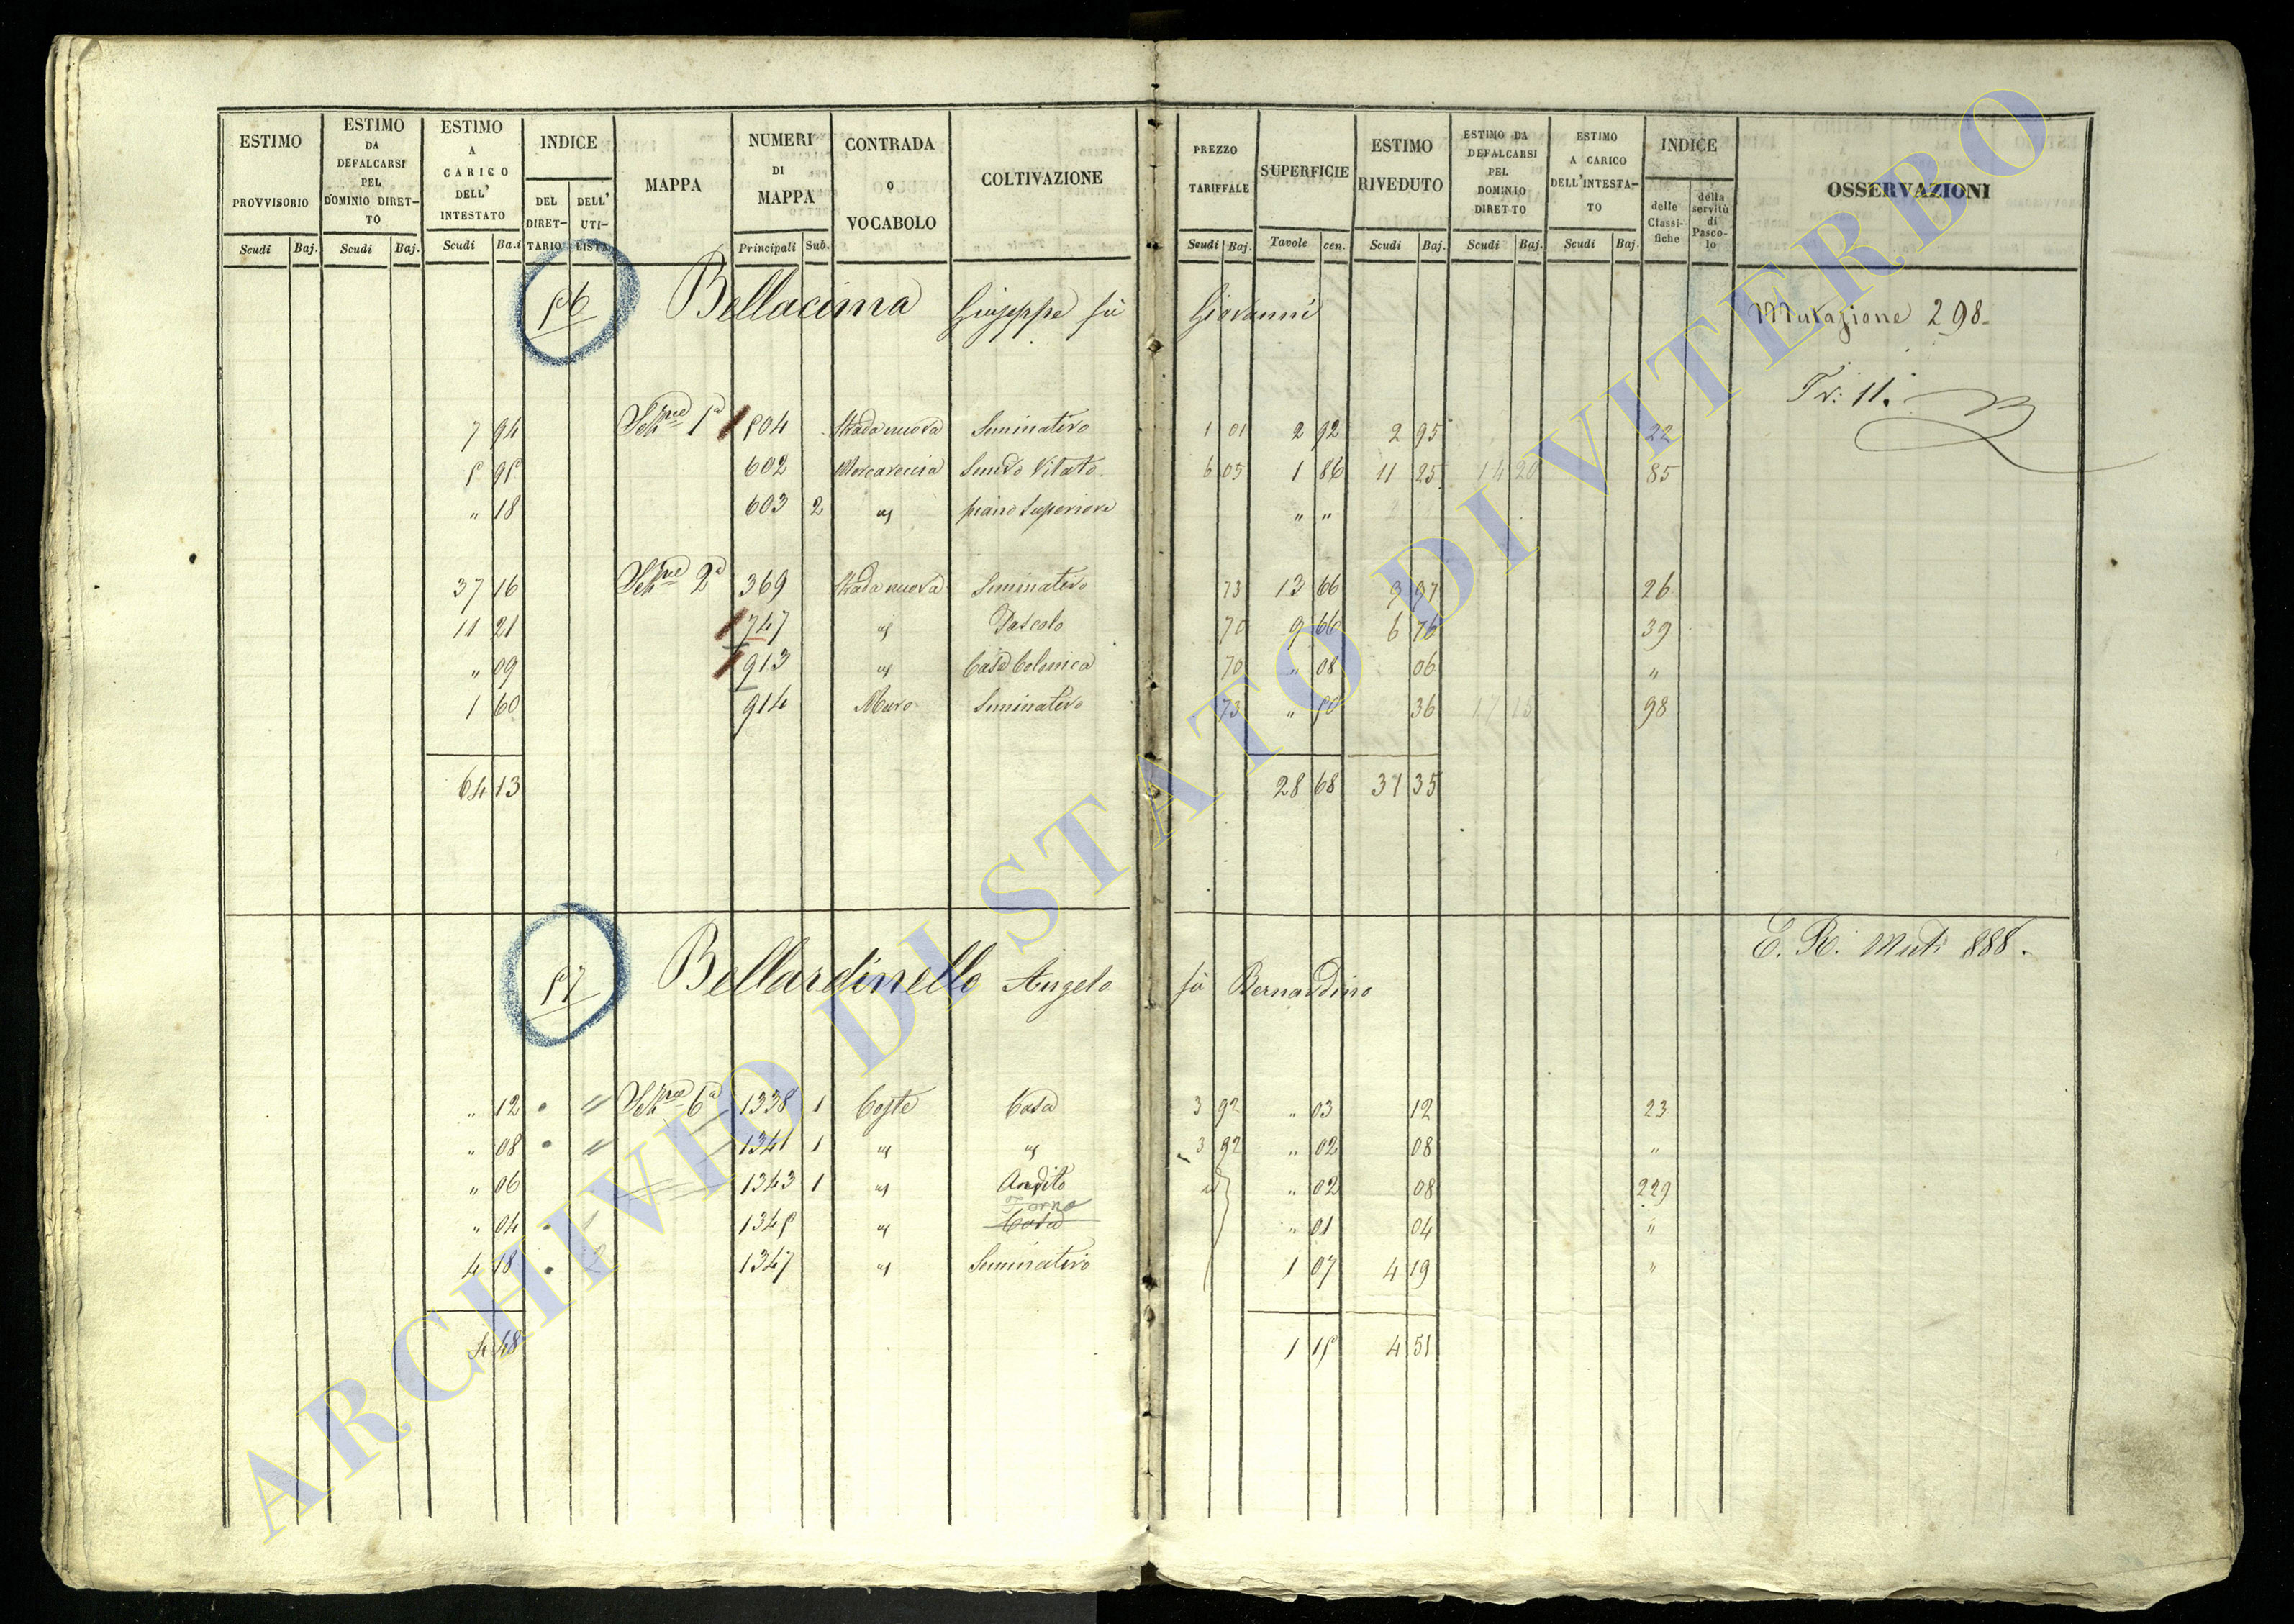 ESTIMO PROVVISORIO
Scudi Baj.
ESTIMO DA DEFALCARSI PEL DOMINIO DIRET-TO
Scudi Baj.
ESTIMO A CARICO DELL' INTESTATO
Scudi Ba.i
INDICE
DEL DIRET-TARIO
DELL' UTI-LISTA
MAPPA
NUMERI DI MAPPA
Principali Sub.
CONTRADA O VOCABOLO
COLTIVAZIONE
PREZZO TARIFFALE
Scudi Baj.
SUPERFICIE
Tavole cen.
ESTIMO RIVEDUTO
Scudi Baj.
ESTIMO DA DEFALCARSI PEL DOMINIO DIRETTO
Scudi Baj.
ESTIMO A CARICO DELL'INTESTA-TO
Scudi Baj.
INDICE
delle Classi-fiche
della servitù di Pasco-lo
OSSERVAZIONI
56 Bellacima Giuseppe fù Giovanni Mutazione 298.
Tr: 11.
7 94 1ª 504 Strada nuova Seminativo 1 01 2 92 2 95 22
5 95 602 Mercareccia Semvo Vitato 6 05 1 86 11 25 14 20 85
" 18 603 2 " piano Superiore " "
37 16 2ª 369 Strada nuova Seminativo 73 13 66 9 97 26
11 21 747 " Pascolo 70 9 66 6 76 39
" 09 913 " Casa Colonica 70 " 08 06 "
1 60 914 Muro Seminativo 73 " 50 36 98
64 13 28 68 31 35
E. R. Mut: 888.
57 Bellardinello Angelo fù Bernardino
" 12 " 6ª 1338 1 Coste Casa 3 92 " 03 12 23
" 08 " 1341 1 " " 3 92 " 02 08 "
" 06 1343 1 " Andito " 02 08 229
Forno
" 04 1345 " Casa " 01 04 "
4 18 2 1347 " Seminativo 1 07 4 19 "
4 48 1 15 4 51
ARCHIVIO DI STATO DI VITERBO